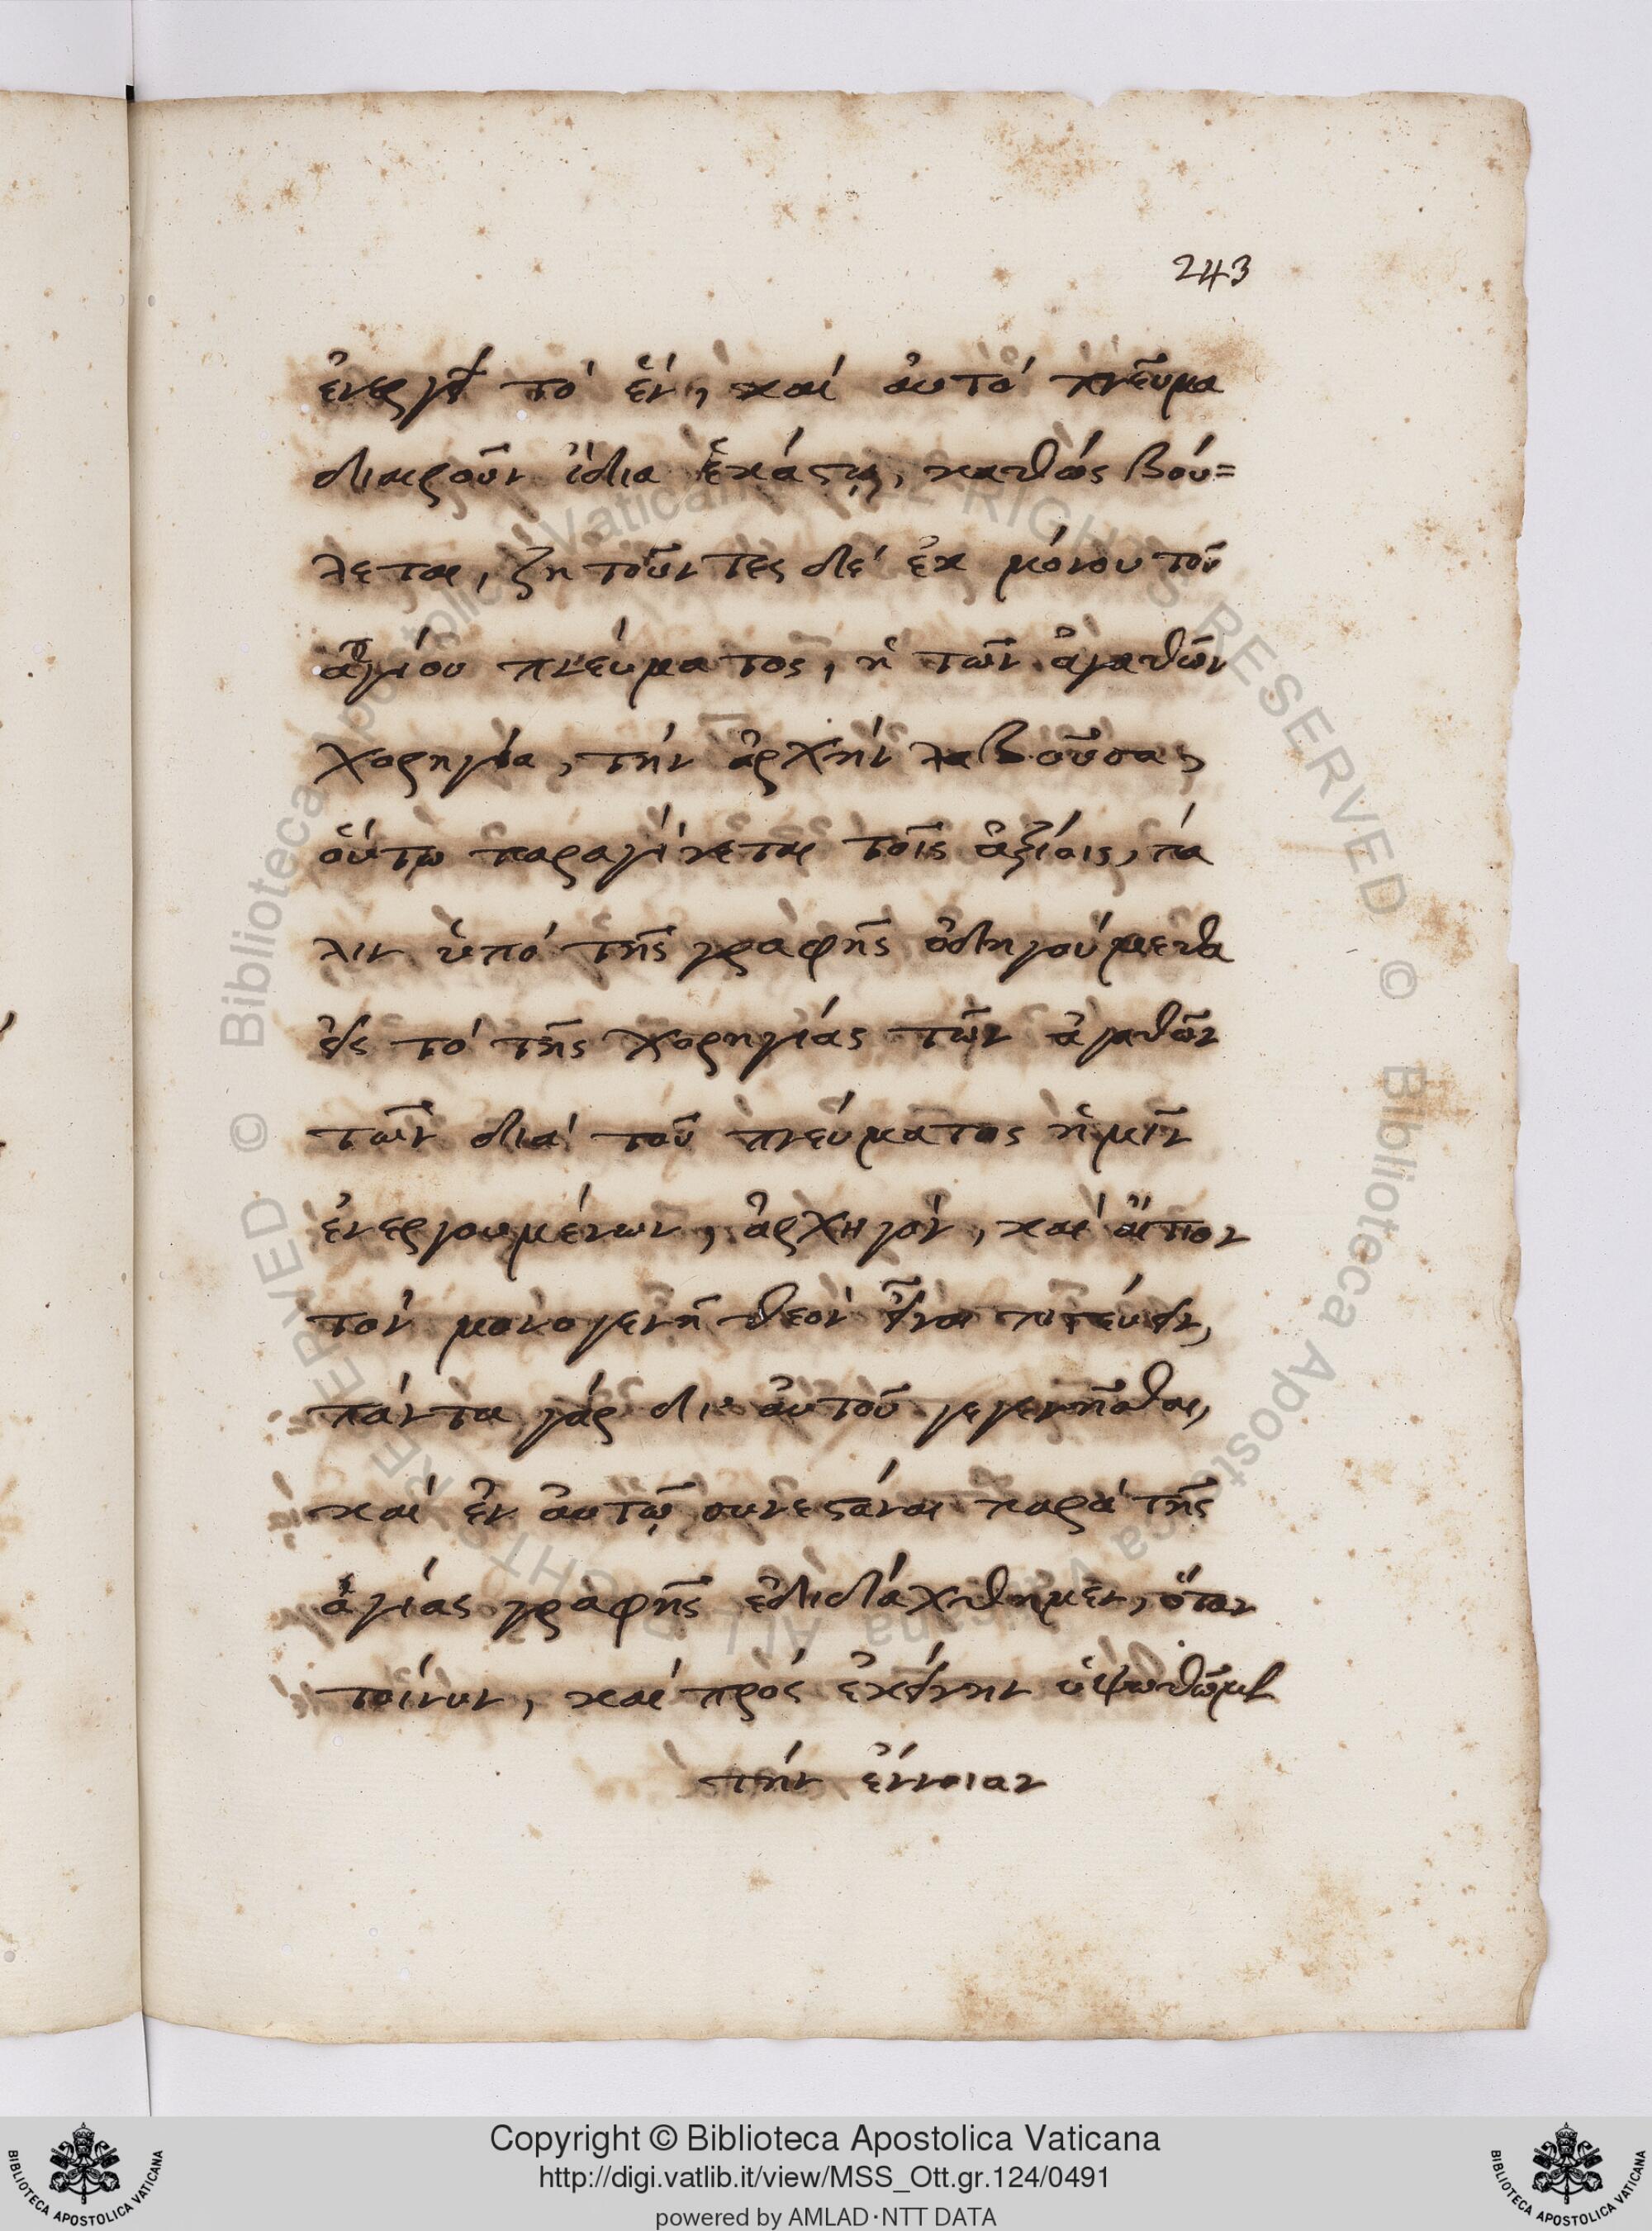 243
ἐνεργεῖ τὸ ἓν, καὶ αὐτὸ πνεῦμα
διαιροῦν ἰδία ἑκάστῳ, καθὼς βού=
λεται, ζητοῦντες δὲ ἐκ μόνου τοῦ
ἁγίου πνεύματος, ἡ τῶν ἀγαθῶν
χορηγία, τὴν ἀρχὴν λαβοῦσα,
οὕτω παραγίνεται τοῖς ἀξίοις, πά
λιν ὑπὸ τῆς γραφῆς ὁδηγούμεθα
εἰς τὸ τῆς χορηγίας τῶν ἀγαθῶν
τῶν διὰ τοῦ πνεύματος ἡμῖν
ἐνεργουμένων, ἀρχηγὸν, καὶ αἴτιον
τὸν μονογενῆ θεὸν εἶναι πιστεύειν,
πάντα γὰρ δι' αὐτοῦ γεγενῆσθαι,
καὶ ἐν αὐτῷ συνεστάναι παρὰ τῆς
ἁγίας γραφῆς ἐδιδάχθημεν, ὅταν
τοίνυν, καὶ πρὸς ἐκείνην ὑψωθῶμεν
τὴν ἔννοιαν
Copyright © Biblioteca Apostolica Vaticana
http://digi.vatlib.it/view/MSS_Ott.gr.124/0491
powered by AMLAD·NTT DATA
BIBLIOTECA APOSTOLICA VATICANA
BIBLIOTECA APOSTOLICA VATICANA